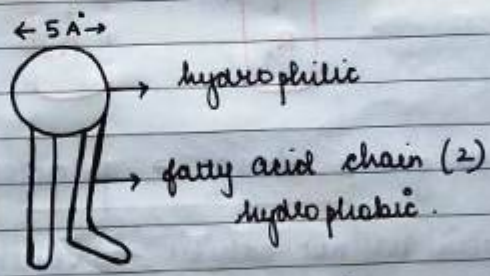 ← 5 A° →
hydrophilic
fatty acid chain (2)
hydrophobic.